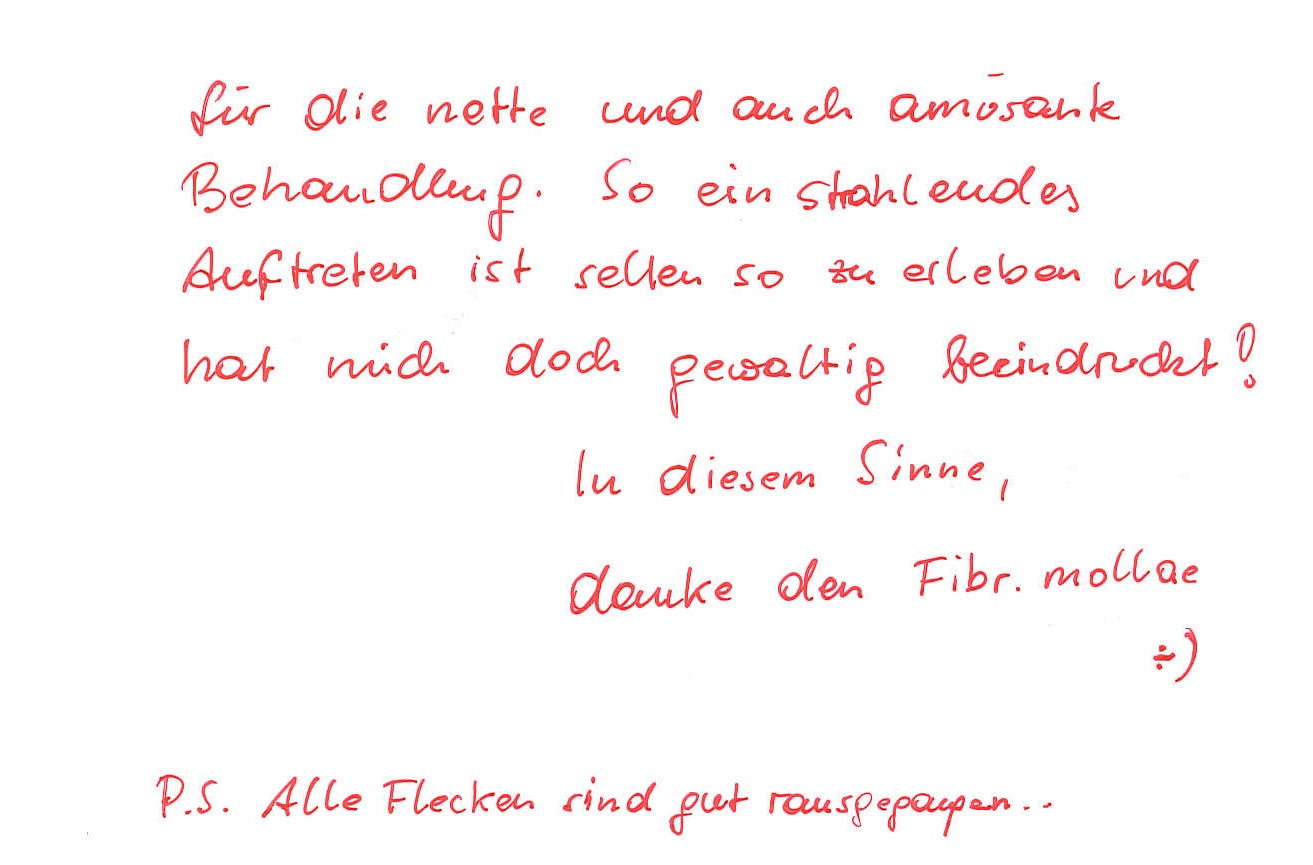 für die nette und auch amüsante
Behandlung. So ein strahlendes
Auftreten ist selten so zu erleben und
hat mich doch gewaltig beeindruckt!
In diesem Sinne,
danke den Fibr. mollae
:-)
P.S. Alle Flecken sind gut rausgegangen..